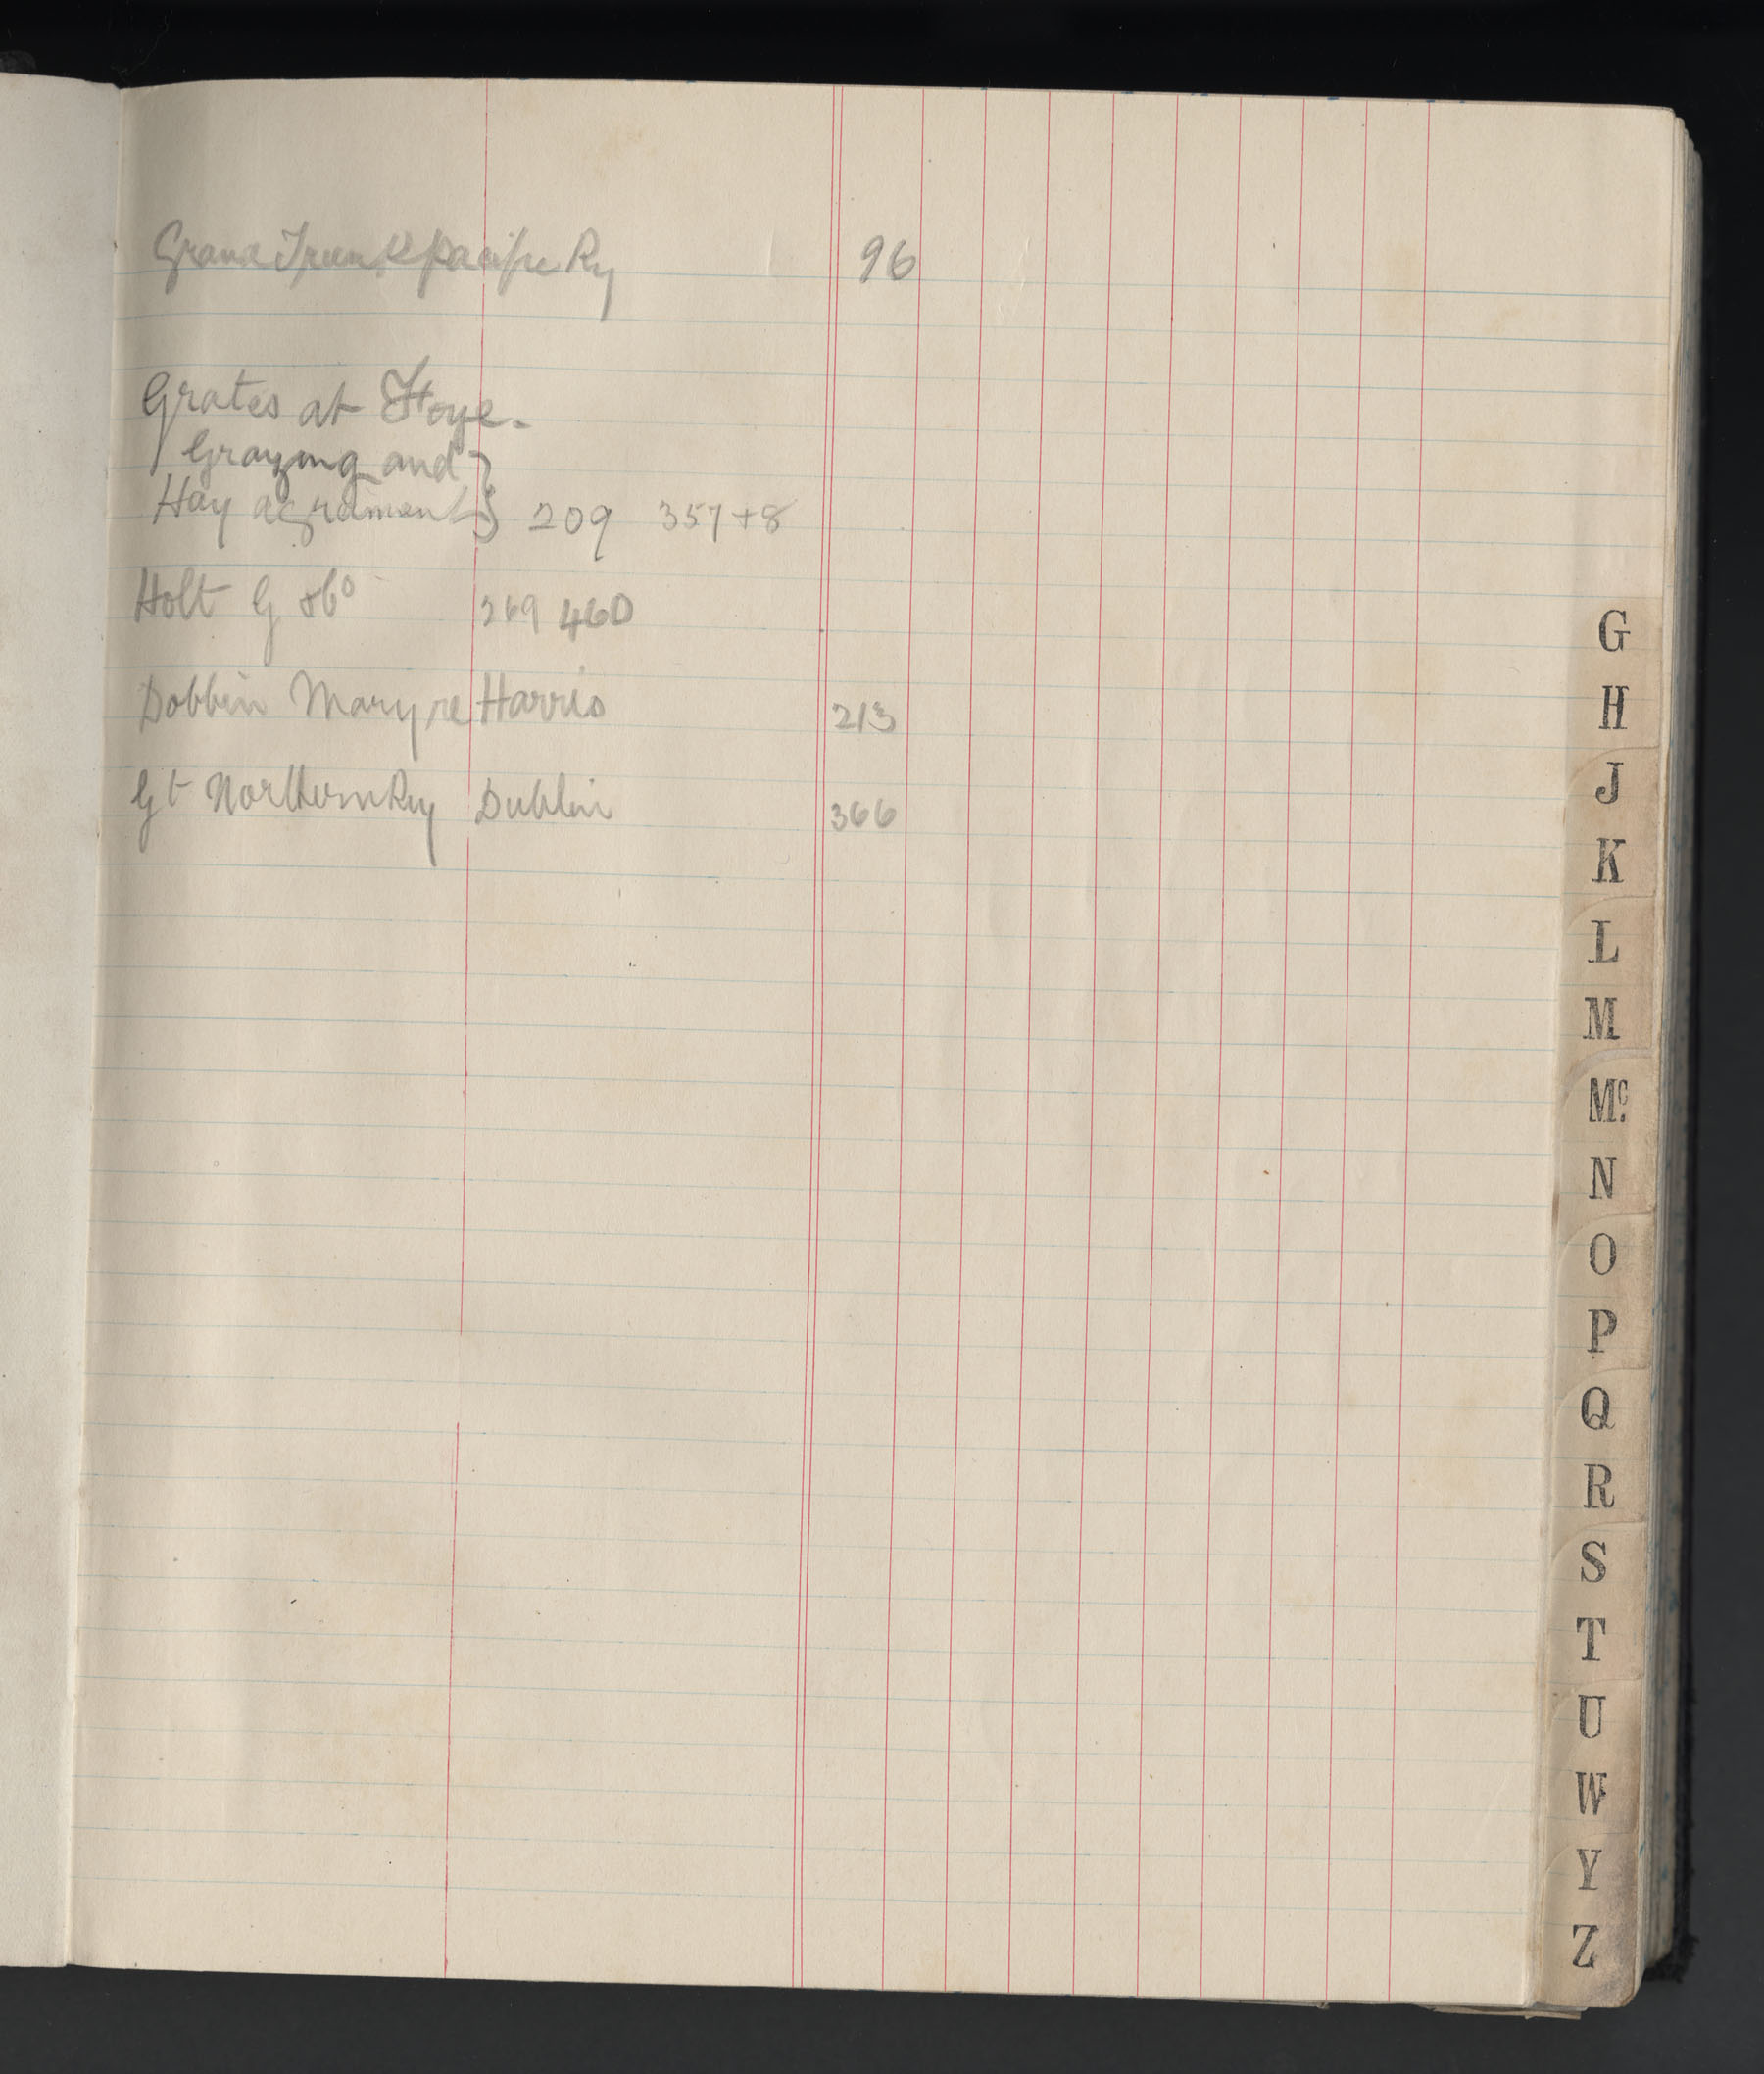 Grand Trunk Pacific Ry 96
Grates at Foye.
Grazing and }
Hay agreement } 209 357+8
Holt G 269 460
Dobbin Mary re Harris 213
Gt Northern Ry Dublin 366
G
H
J
K
L
M
Mc.
N
O
P
Q
R
S
T
U
W
Y
Z